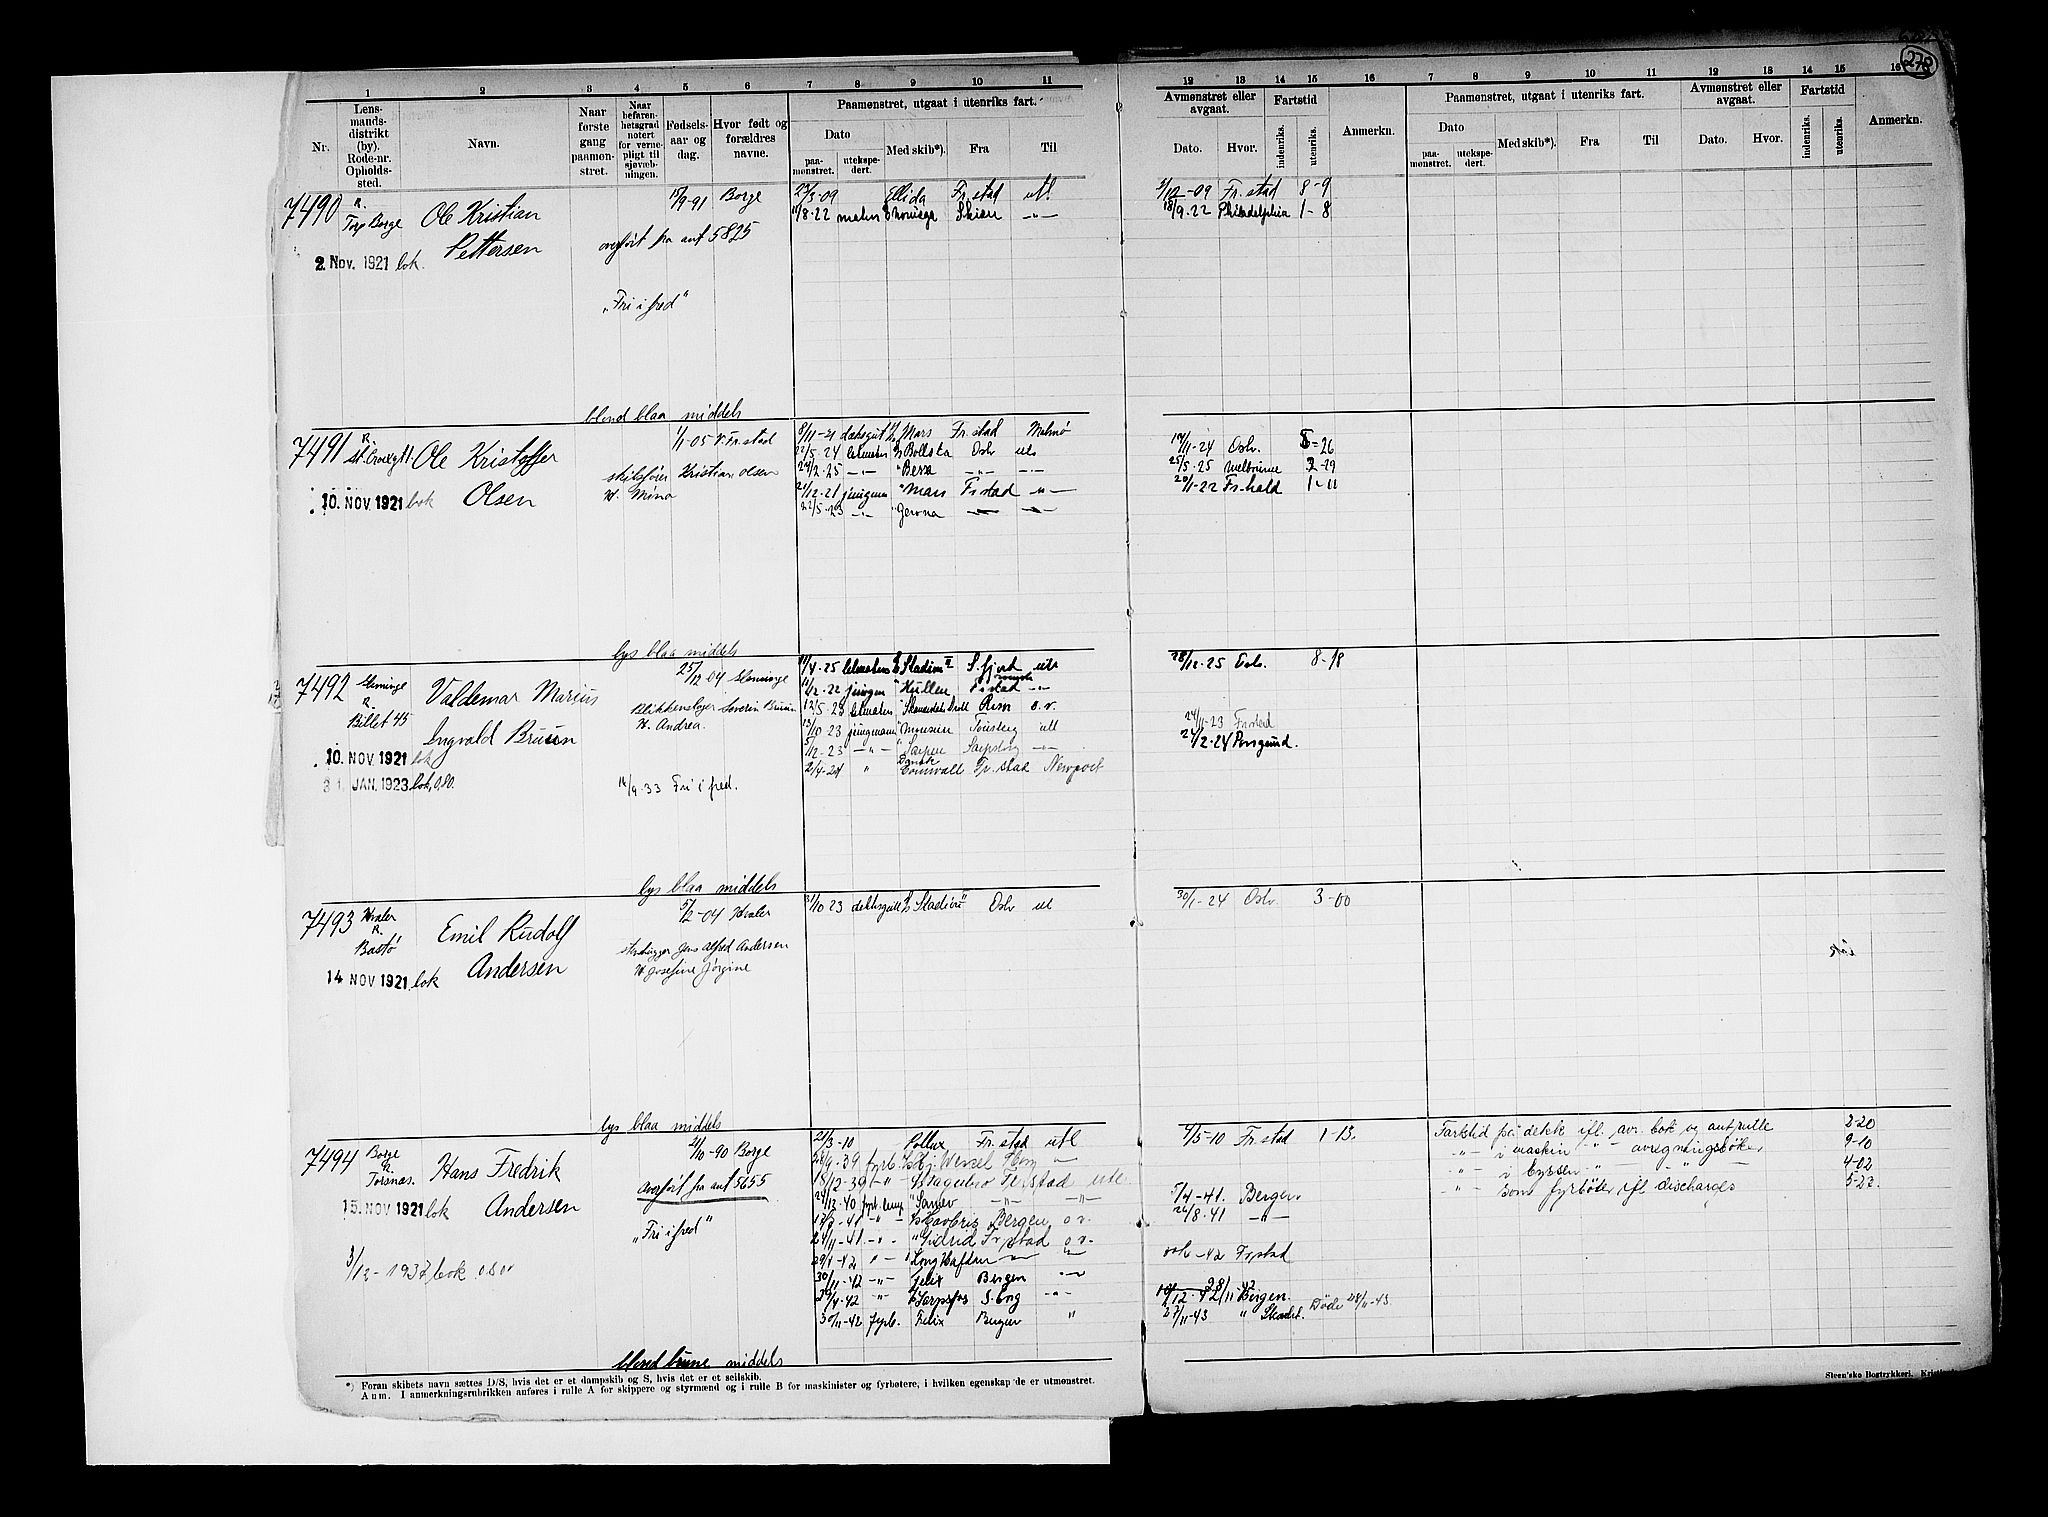 278
1 2 3 4 5 6 7 8 9 10 11 12 13 14 15 16 7 8 9 10 11 12 13 14 15 16
Nr.
Lens-
mands-
distrikt
(by).
Rode-nr.
Opholds-
sted.
Navn.
Naar
første
gang
paamøn-
stret.
Naar
befaren-
hetsgrad
notert
for verne-
pligt til
sjøvæb-
ningen.
Fødsels-
aar og
dag.
Hvor født og
forældres
navne.
Paamønstret, utgaat i utenriks fart.
Dato
paa-
mønstret.
utekspe-
dert.
Med skib*).
Fra
Til
Avmønstret eller
avgaat.
Dato.
Hvor.
Fartstid
indenriks.
utenriks.
Anmerkn.
Paamønstret, utgaat i utenriks fart.
Dato
paa-
mønstret.
utekspe-
dert.
Med skib*).
Fra
Til
Avmønstret eller
avgaat.
Dato.
Hvor.
Fartstid
indenriks.
utenriks.
Anmerkn.
7490 R. Torp Borge
Ole Kristian
Pettersen
2. Nov. 1921 bok.
15/9-91 Borge
overført fra ant 5825
"Fri i fred"
blond blaa middels
23/3-09 Ellida Fr.stad utl
11/8-22 matr Skien -"-
2/12-09 Fr.stad 8-9
18/9-22 Philadelphia 1-8
7491 R.
Ole Kristoffer
Olsen
10. NOV. 1921 bok
1/1-05 V. Fr.stad
skibsfører Kristian Olsen
H. Mina
lys blaa middels
8/11-21 dæksgut Mars Fr.stad Malmø
22/5-24 letmatr Bollsta Oslo utl
24/2-25 -"- Bessa -"- -"-
27/12-21 jungm " Mars Frstad -"-
22/5-23 -"- " Gerona -"- -"-
14/11-24 Oslo. 5-26
25/5-25 Melbourne 2-29
20/11-22 Fr.hald 1-11
7492 Glemminge
R.
Billet 45
Valdemar Marius
Ingvald Bruun
10. NOV 1921 bok
31. JAN. 1923 bok, 0,80.
25/12-04 Glemminge
Blikkenslager Severin Bruun
H. Andrea.
14/9-33 Fri i fred.
lys blaa middels
11/4-25 letmatros Stadion II S.fjord utl
11/2-22 jungm " Hullen Frstad -"-
12/5-23 letmatr " o.v.
13/10-23 jungmann " Tønsberg utl
5/12-23 -"- " Sarpen Sarpsborg -"-
2/4-24 " Cornwall Fr.stad Newport
28/12-25 Oslo. 8-18
24/11-23 Frstad
24/2-24 Porsgrund.
7493 Hvaler
R.
Bastø
Emil Rudolf
Andersen
14 NOV 1921 bok
5/2-04 Hvaler
stenhugger Jens Alfred Andersen
H. Josefine Jørgine
lys blaa middels
31/10 23 dækksgutt Stadion II Oslo utl
30/1-24 Oslo. 3-00
7494 Borge
R.
Torsnæs.
Hans Fredrik
Andersen
15. NOV 1921 bok
3/12-1937 bok 0.80
21/10-90 Borge
overført fra ant 5655
"Fri i fred"
blond brune middels
21/3-10 Pollux Fr.stad utl
28/9-39 fyrb. Wessel "
18/12-39 -"- Frstad utl
24/12-40 -"- -"-
17/7-41 -"- Bergen o.v.
24/11-41 -"- " Gudrid Frstad o.v.
29/1-42 -"- Kong Halfdan -"- -"-
30/11-42 -"- Felix Bergen -"-
29/4-42 " Sarpsfos S.borg -"-
30/11-42 fyrb. Felix Bergen "
4/5-10 Frstad 1-13.
5/4-41. Bergen.
26/8-41 -"-
-42 Frstad
10/12-42 28/11-42 Bergen.
27/11-43 " Skadet. Døde 28/11-43.
Fartstid på dekk ifl. avr. bok og ant.rulle 2-20
-"- i maskin -"- avregningsbøker 9-10
-"- i byssen -"- -"- 4-02
-"- som fyrbøter ifl discharges 5-27
*) Foran skibets navn sættes D/S, hvis det er et dampskib og S, hvis det er et seilskib.
Anm. I anmerkningsrubrikken anføres i rulle A for skippere og styrmænd og i rulle B for maskinister og fyrbøtere, i hvilken egenskap de er utmønstret.
Steen'ske Bogtrykkeri,